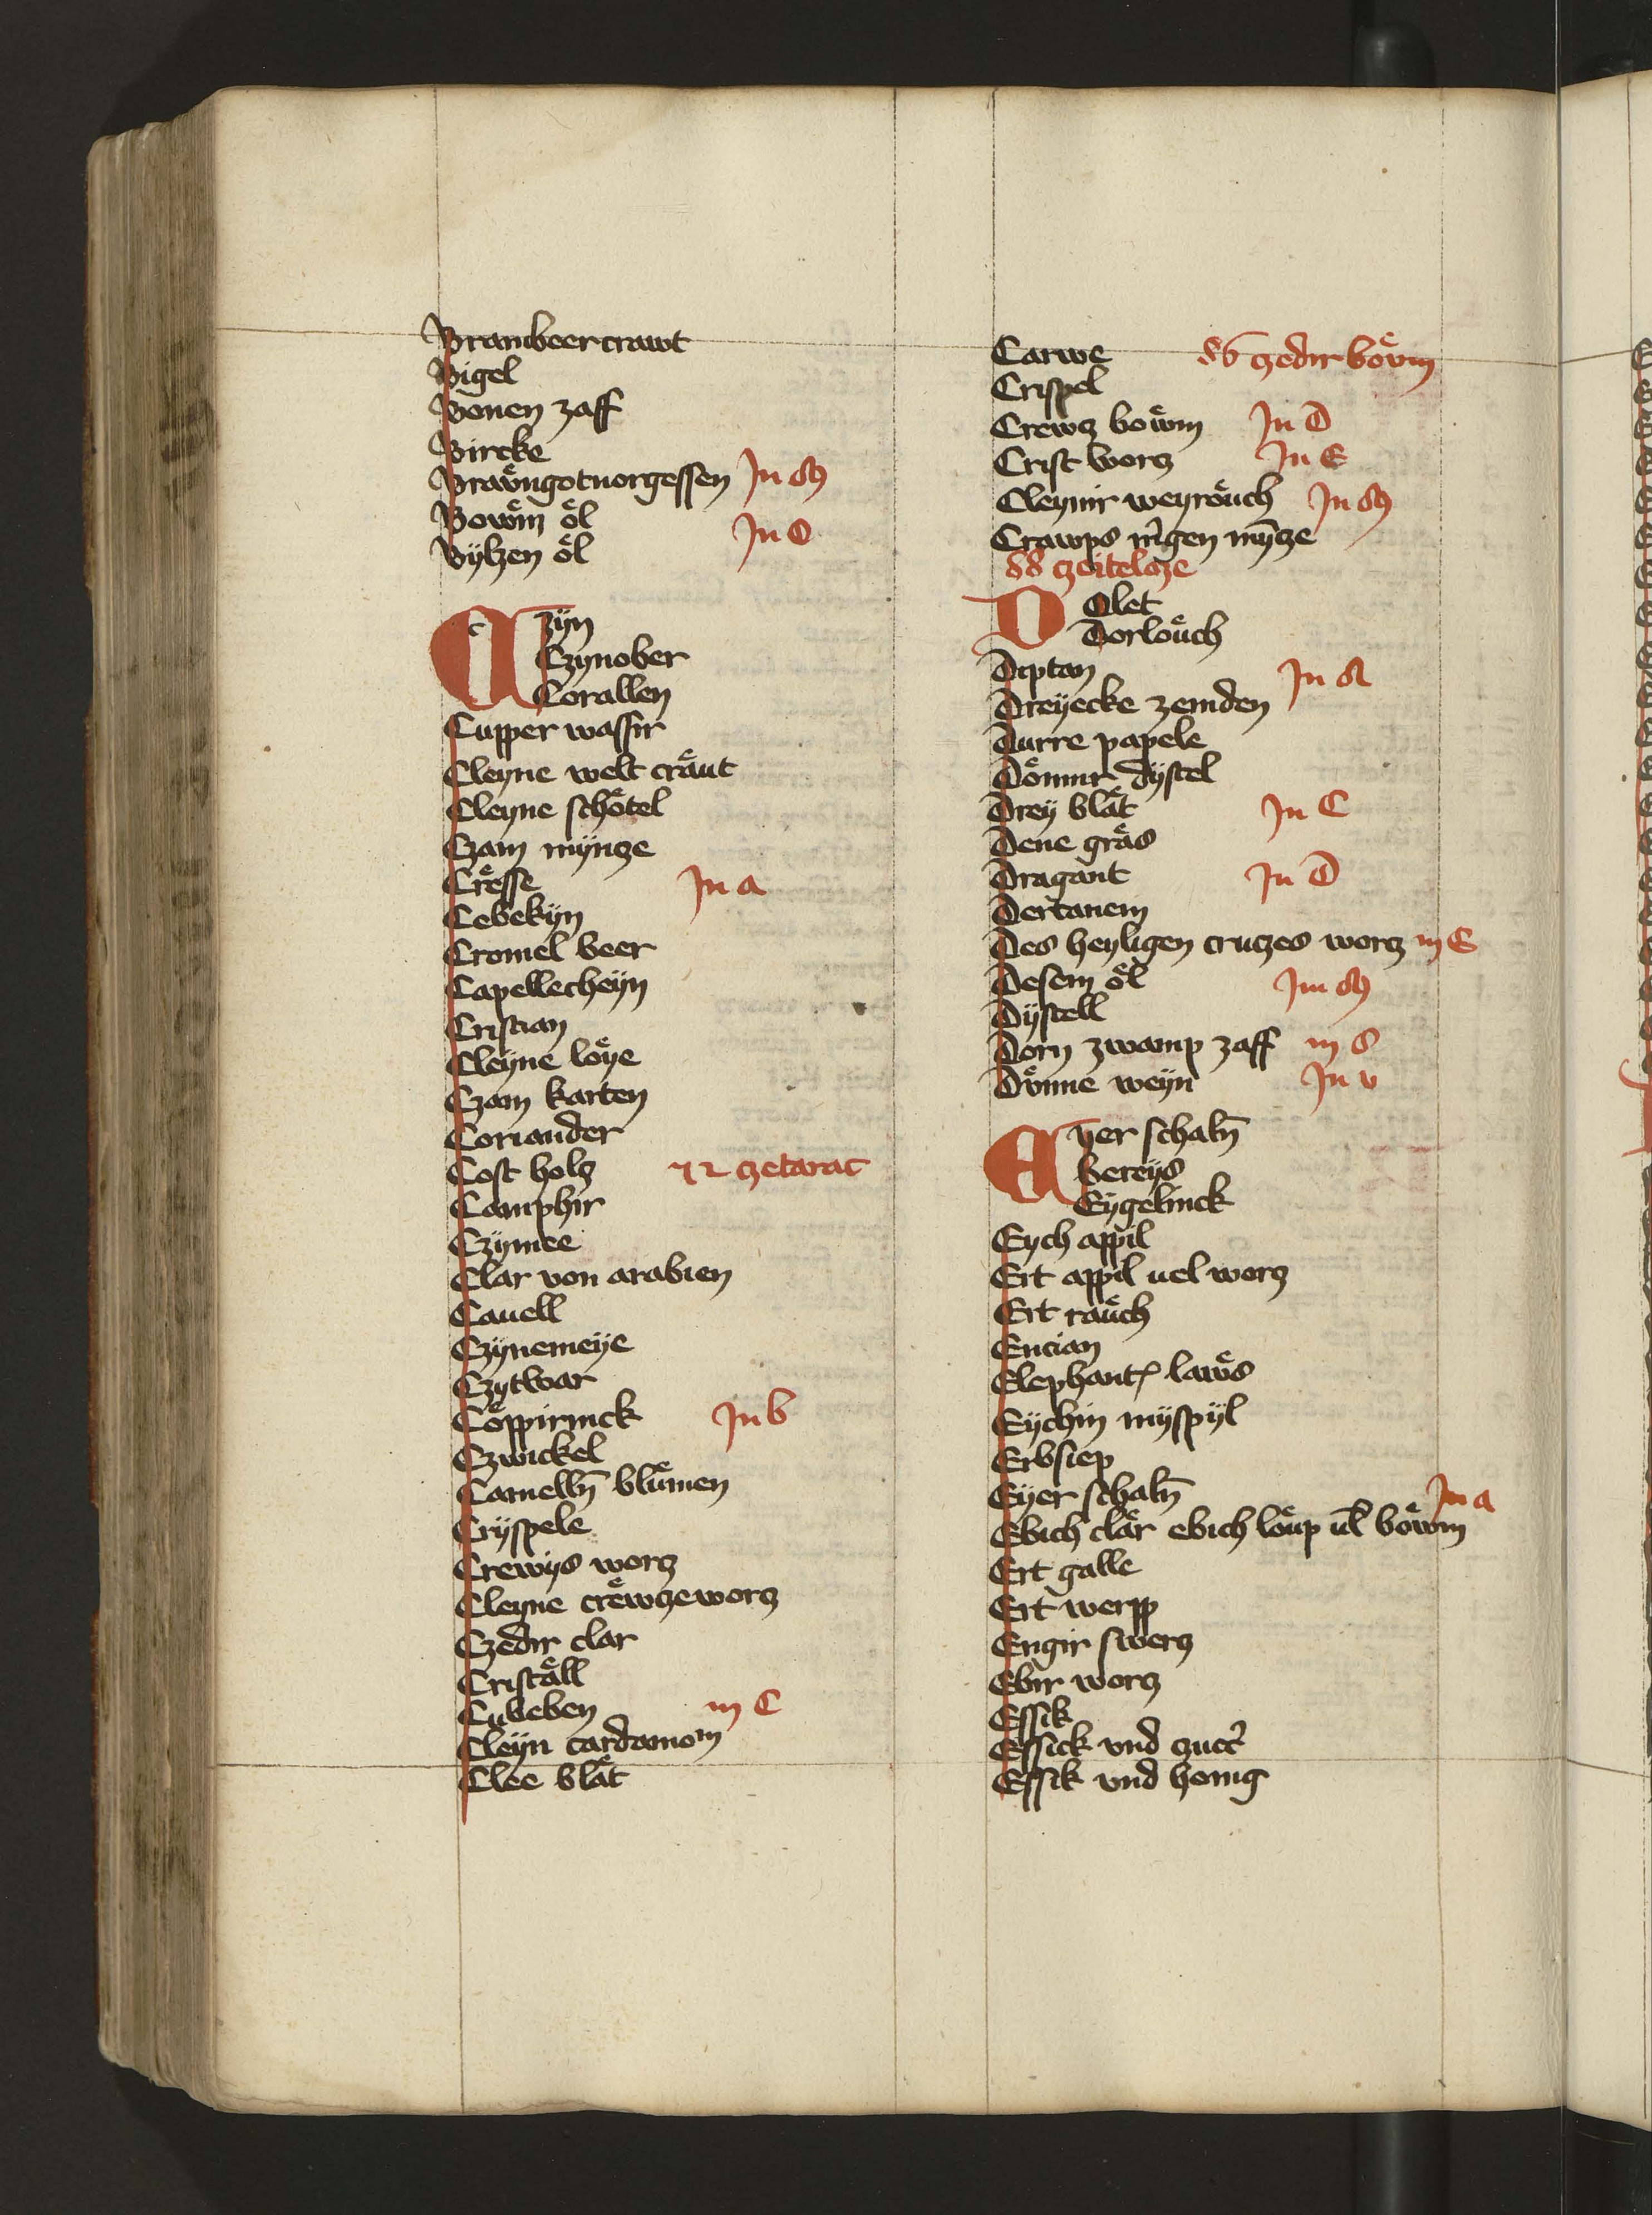 Brambeer crawt
Bigel
Bonen zaff
Bircke
Braůngotuorgessen Jn M
Bowm̊ ôl
Bÿlzen ôl Jn O
Czÿn
Czÿnober
Corallen
Cupper wassir
Cleyne welt craͤut
Cleyne schoͤtel
Czam mÿncze
Creͤsse Jn a
Cebekÿn
Cromel beer
Capellecheÿn
Cristian
Cleÿne loͤye
Czam karten
Coriander
Cost holcz 72 czetarac
Camphir
Czÿmee
Clar von arabien
Cauell
Czÿnemeÿe
Czÿtwar
Coͤppirinck Jn b
Czwickel
Camelln̄ bluͤmen
Crÿspele
Crewÿs worcz
Cleyne creͤwczeworcz
Czedir clar
Cristaͤll
Cubeben in C
Cleÿn cardamom
Clee blaͤt
Carwe 86 czedir boͤvm
Crispel
Crewcz boͤwm Jn D
Crist worcz Jn E
Cleynir weyroͤuch Jn M
Crawps m̊gen mȳcze
88 czeiteloze
Dolet
Dorloͤuch
Diptan Jn A
Dreÿecke zemden
Durre papele
Doͤnnir dÿstel
Dreÿ blaͤt Jn C
Dene graͤs
Dragant Jn D
Dertanem
Des heyligen cruczes worcz in E
Desem oͤl Jm M
Dÿstell
Dorn zwamp zaff in S
Doͤnne weÿn Jn v
Eyer schaln̄
Ebereÿs
Eÿgelinck
Eych appil
Ert appil uel worcz
Ert raͤuch
Encian
Elephantz laͤws
Eÿchin mÿspÿl
Erbsiep
Eÿer schaln̄ Jn a
Ebich claͤr ebich loͤup ul̄ boͤwm
Ert galle
Ert werpp
Engir swercz
Ebir worcz
Essik
Essick vnd zucc̉
Essik vnd honig